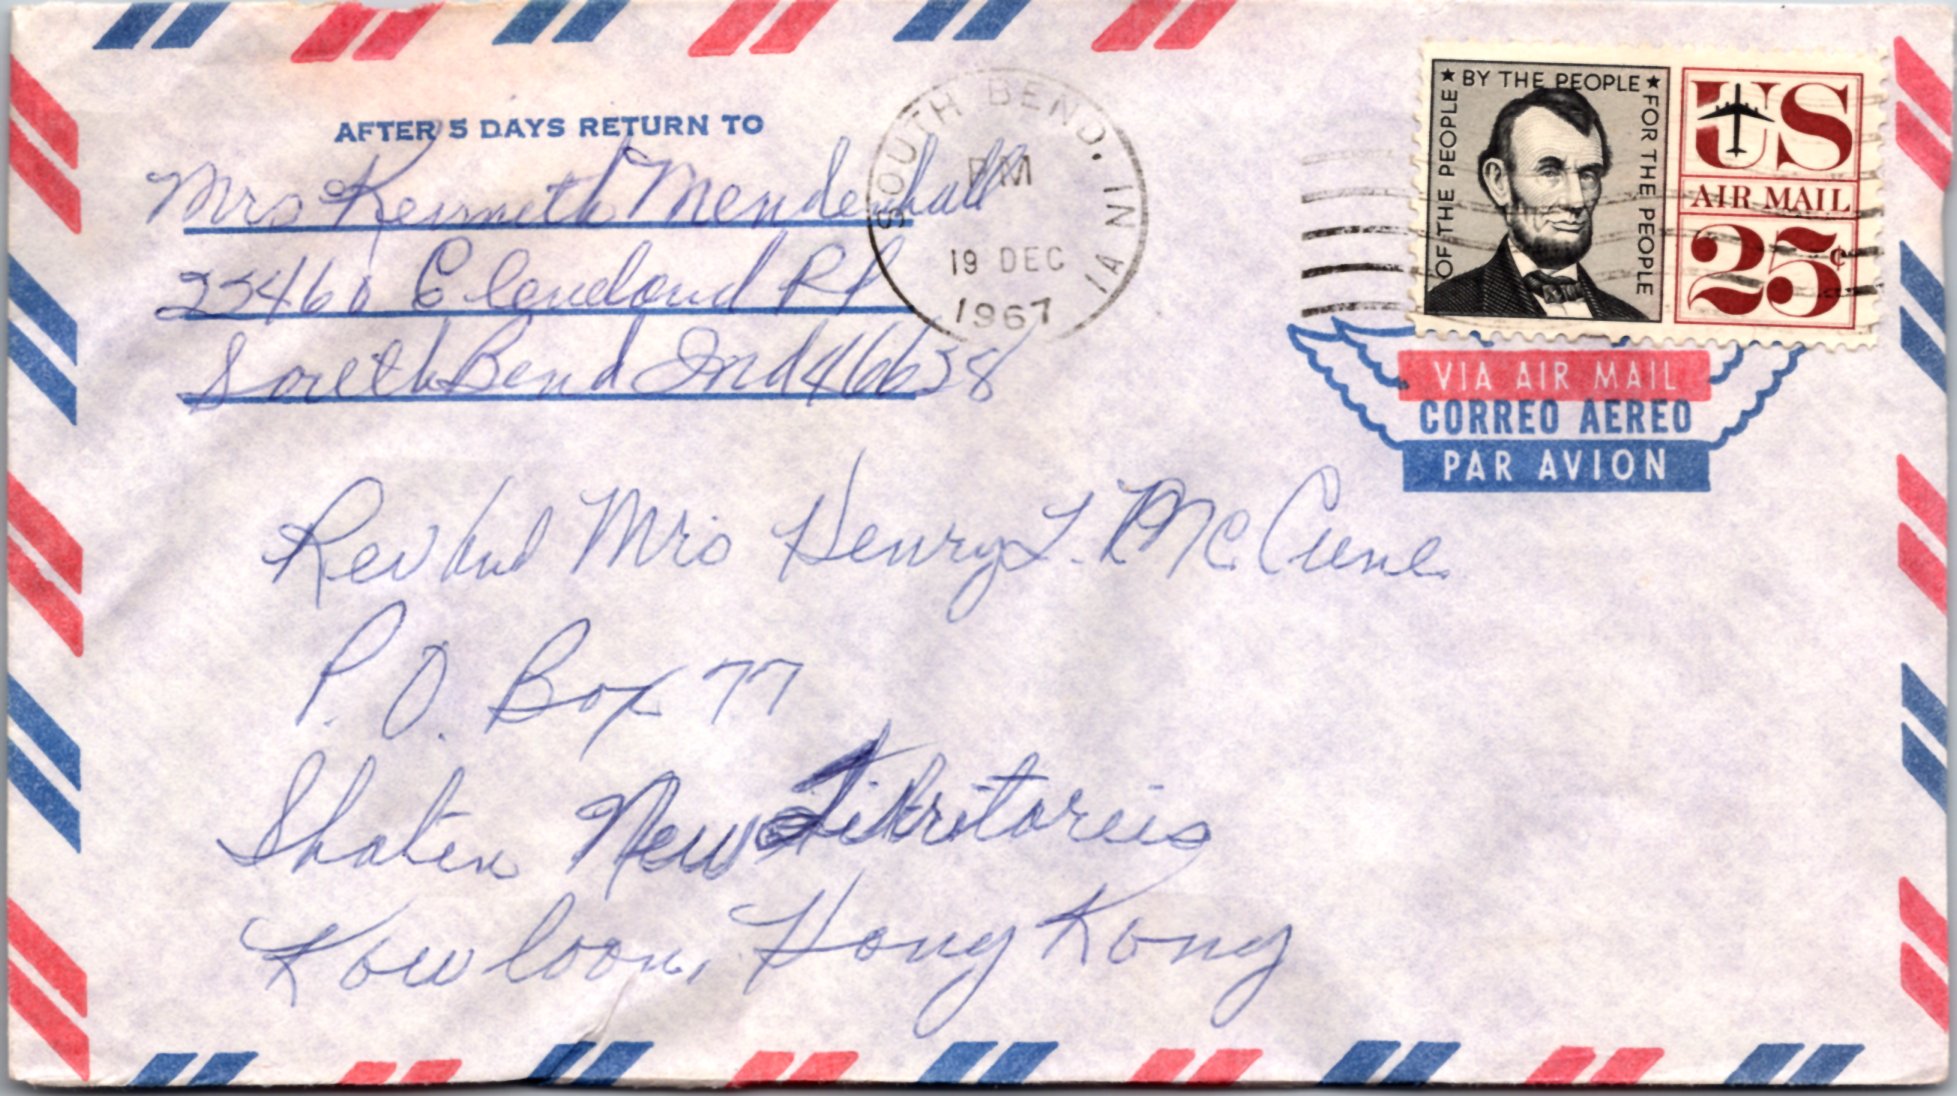 AFTER 5 DAYS RETURN TO
Mrs Kenneth Mendenhall
23460 Cleveland Rd
South Bend Ind 46628
SOUTH BEND, IN
PM
19 DEC
1967
OF THE PEOPLE ★ BY THE PEOPLE ★ FOR THE PEOPLE
US
AIR MAIL
25¢
VIA AIR MAIL
CORREO AEREO
PAR AVION
Rev and Mrs Henry L. McCune
P.O. Box 77
Shatin New Territories
Kowloon, Hong Kong